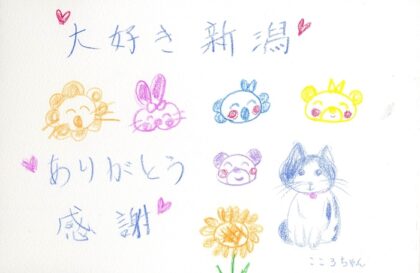 大好き新潟
ありがとう
感謝
こころちゃん